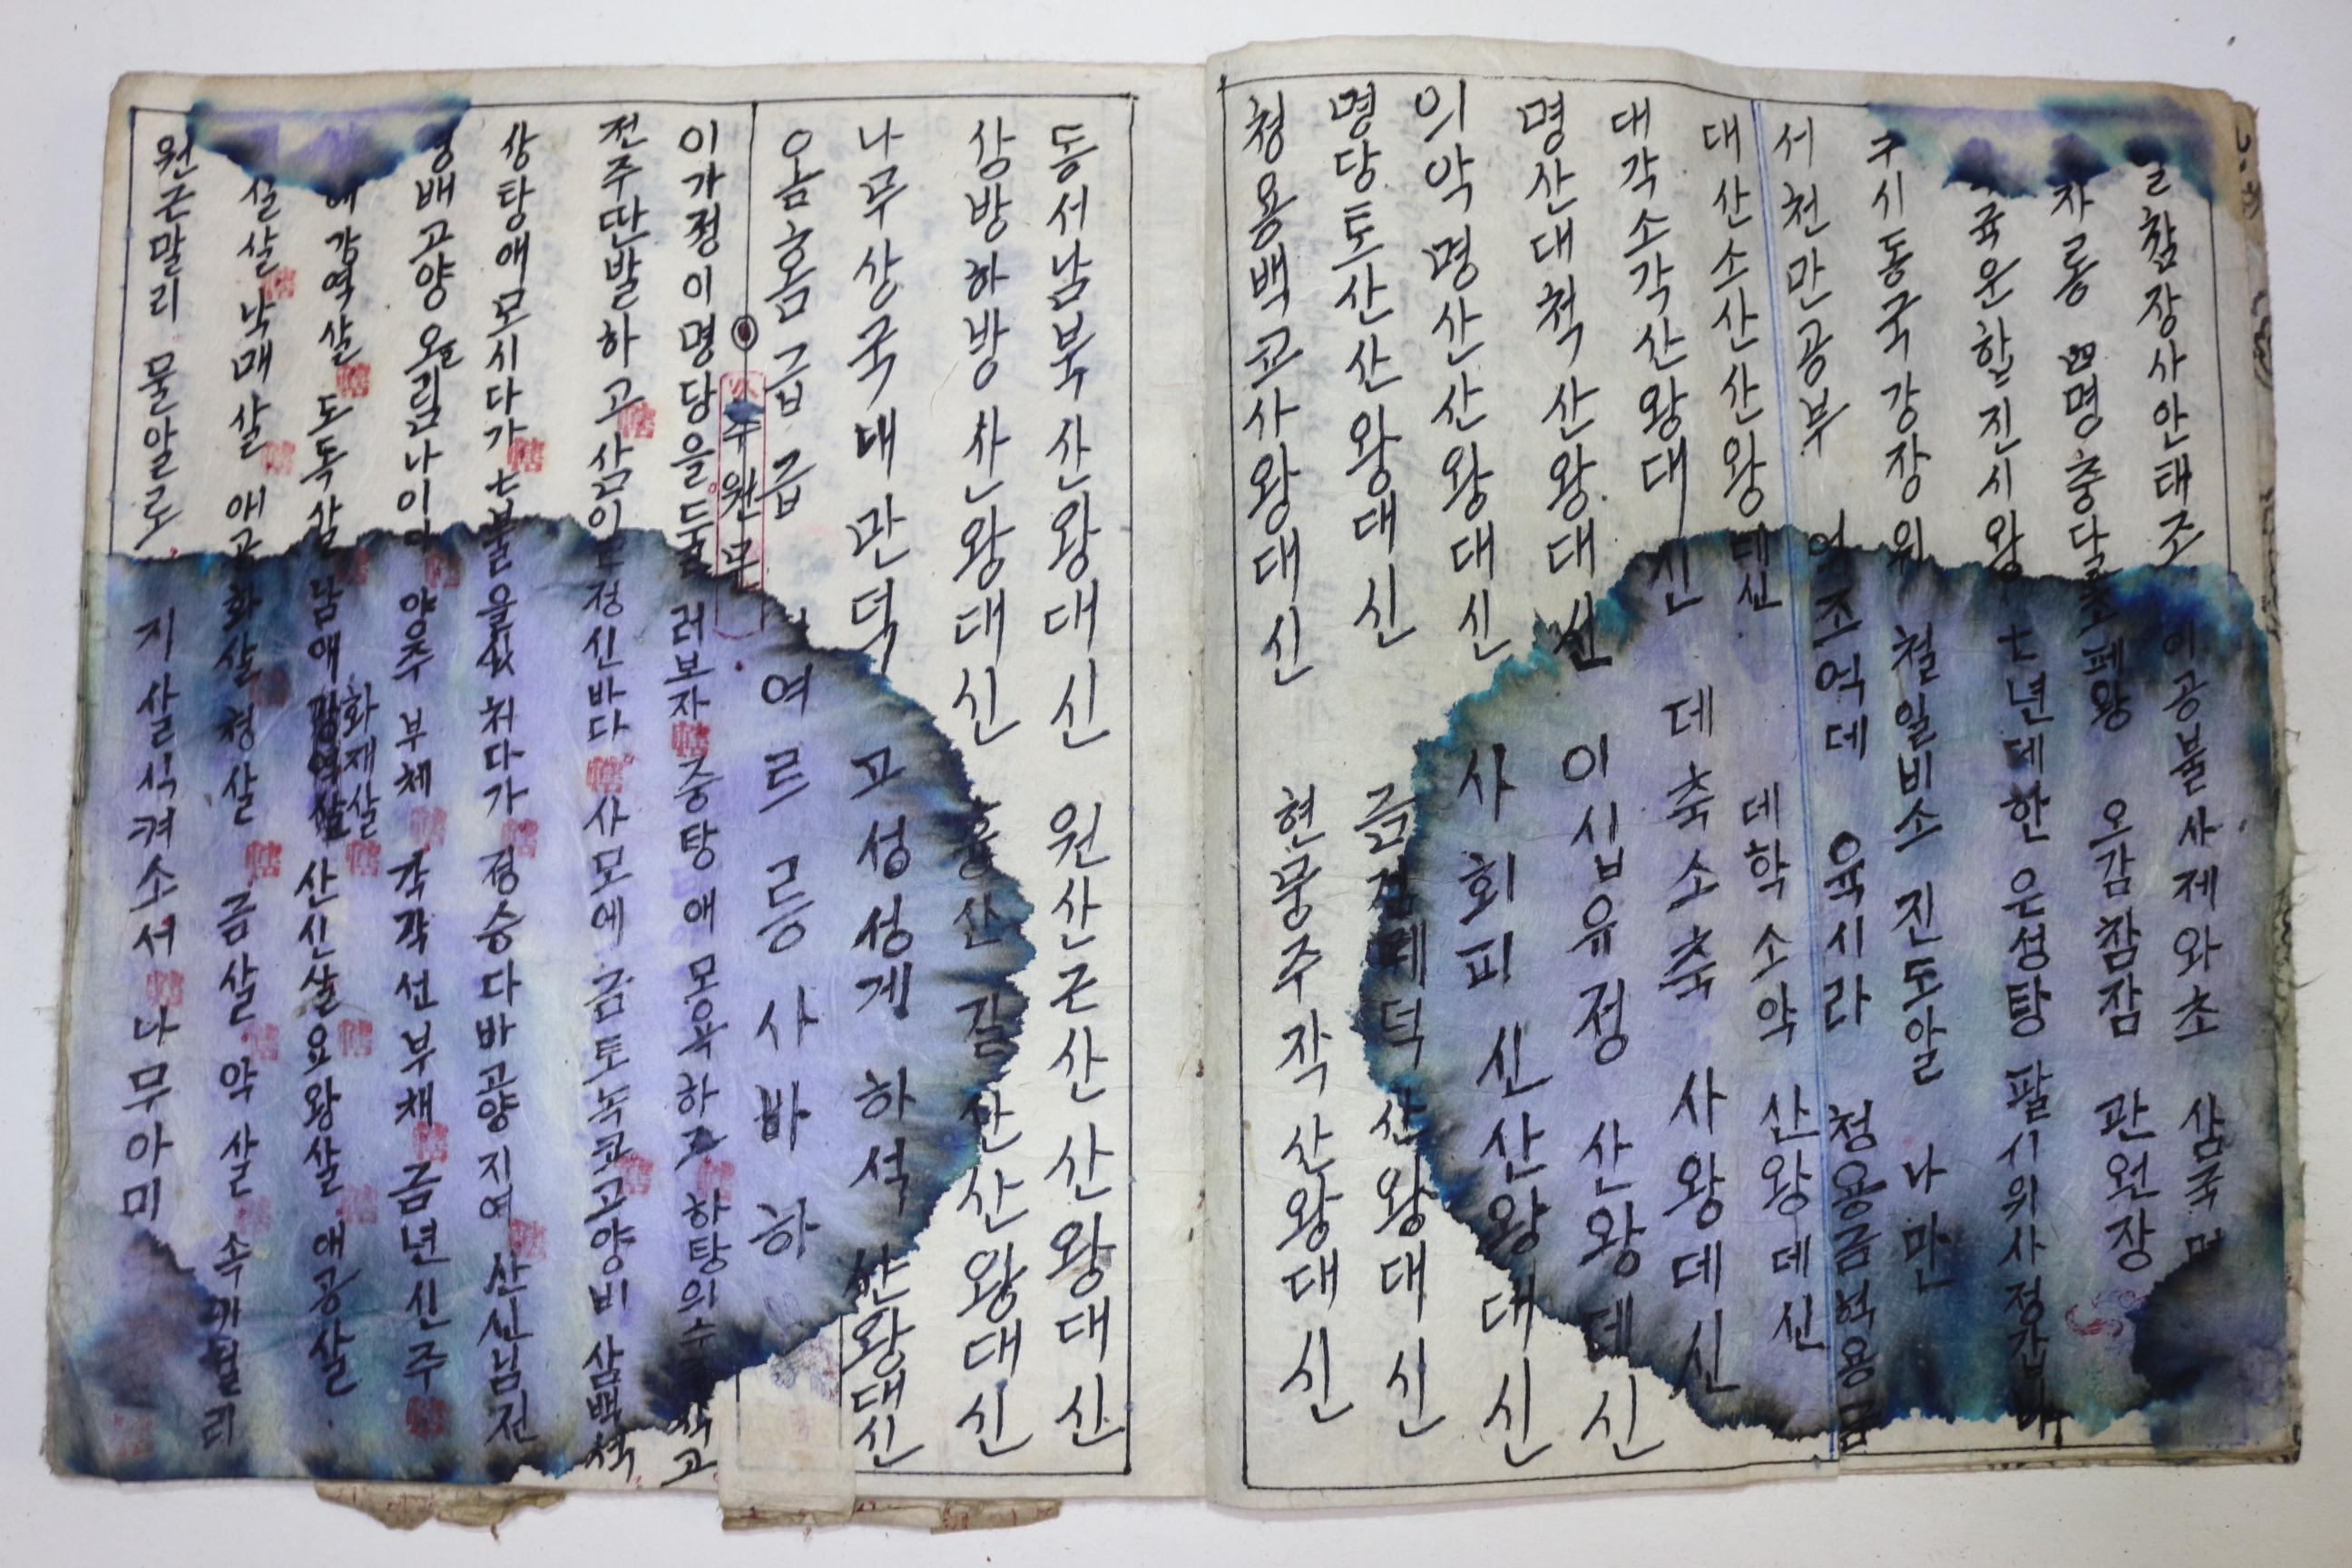 살참장사안태조 공불사제와초 삼국
자룡 四명 중다 왕 오감참잠 관원장
육운한진시왕 七년데한 은성탕 팔시위사정갑
구시동국강장 철일비소 진도알 나만
서천만공부 억조억데 육시라 청용금
대산소산산왕대신 데학소악 산왕데신
대각소각산왕대신 데축소축 사왕데신
명산대척산왕대신 이십유정 산왕데신
의악명산산왕대신 사회피신산왕대신
명당토산산왕대신 금 데덕산왕대신
청용백교사왕대신 현뭉주작산왕대신
동서남북산왕대신 원산근산산왕대신
상방하방산왕대신 흉산길산산왕대신
나무상국대만덕 고성성게 하석산왕대신
옴홈급급 여르릉사바하
주원문
이가정이명당을둘러보자 중탕애모욕하고 하탕의수 고
전주딴발하고 삼 정신바다 사모에 금토녹코고양비 삼백석
상탕애모시다가 七불을 처다가 정승다바고양지여 산신님전
배고양 올림나이다 양주부체 각각선부채 금년신주
도독살 남애 화재살 산신살요왕살 애공살
살살 낙매살 화살 청살 금살 악살 속 리
원근말리 물알로 지살식켜소서 나무아미